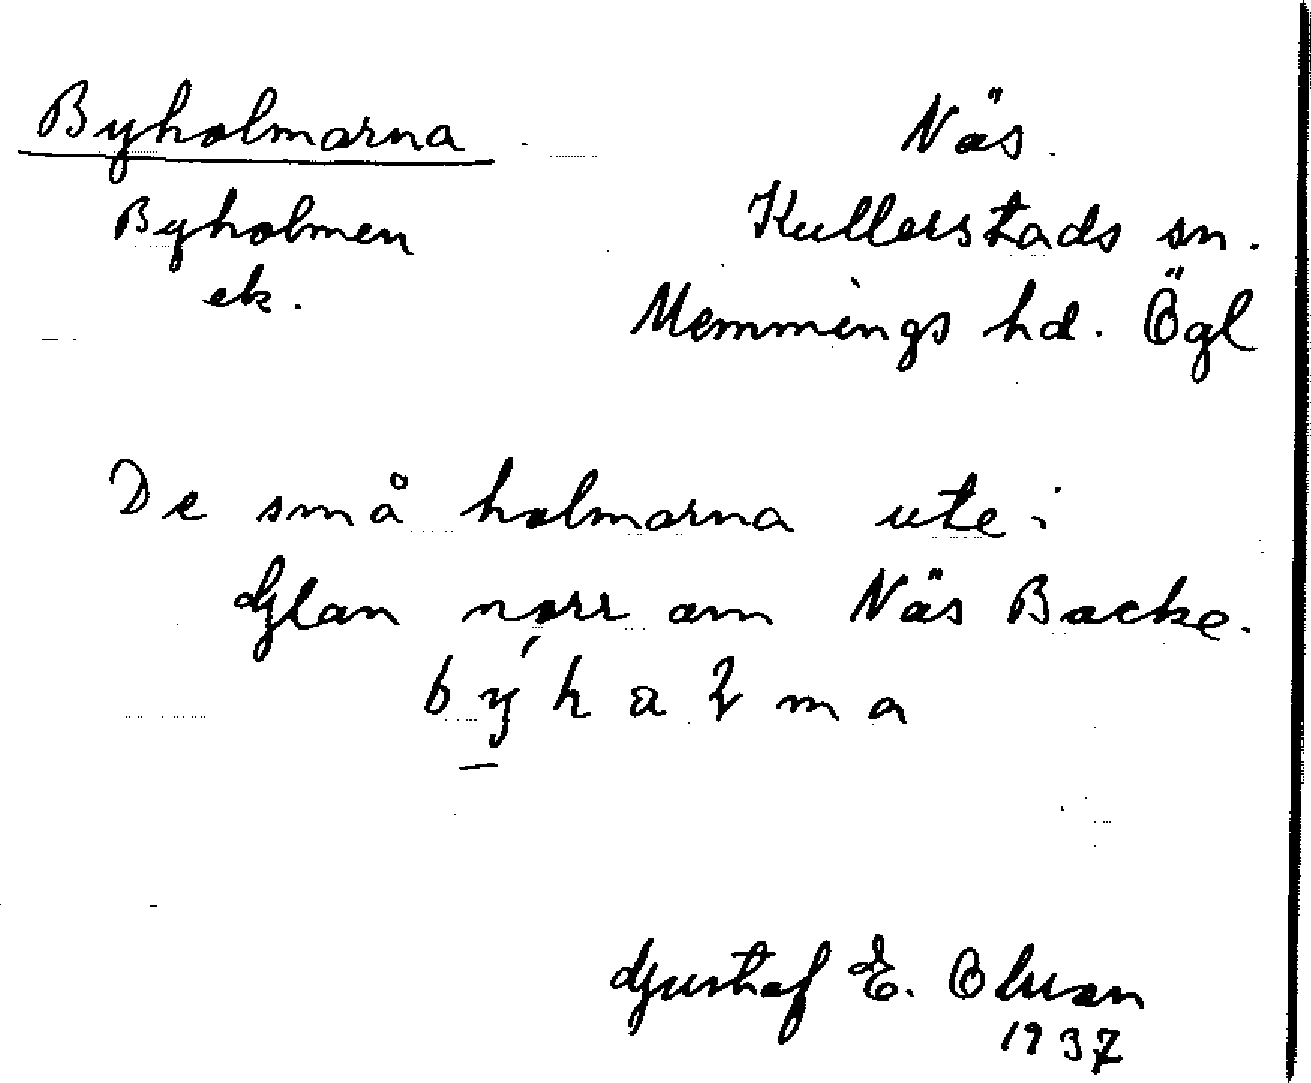 Byholmarna
Byholmen
ek.
Näs.
Kullerstads sn.
Memmings hd. Ögl
De små holmarna ute i
Glan norr om Näs Backe.
býhalma
Gustaf E. Olsson
1937